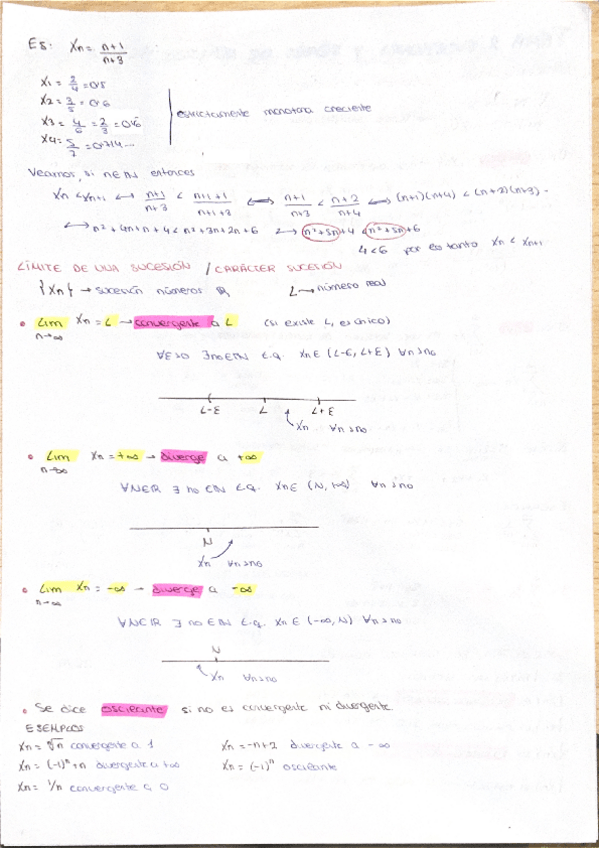 Ej: Xn = n+1/n+3
X1 = 2/4 = 0'5
X2 = 3/5 = 0'6
X3 = 4/6 = 2/3 = 0'6̂
X4 = 5/7 = 0'714...
estrictamente monótona creciente
Veamos, si n∈ℕ entonces
Xn < Xn+1 ⟷ n+1/n+3 < n+1+1/n+1+3 ⟺ n+1/n+3 < n+2/n+4 ⟺ (n+1)(n+4) < (n+2)(n+3)
⟷ n²+4n+n+4 < n²+3n+2n+6 ⟷ n²+5n+4 < n²+5n+6
4<6 por es tanto Xn < Xn+1
LÍMITE DE UNA SUCESIÓN / CARÁCTER SUCESIÓN
{Xn} → sucesión números ℝ L → número real
• Lim n→∞ Xn = L → convergente a L (si existe L, es único)
∀ε>0 ∃n0∈ℕ t.q. Xn∈(L-ε, L+ε) ∀n≥n0
L-ε L L+ε
Xn ∀n≥n0
• Lim n→∞ Xn = +∞ → diverge a +∞
∀N∈ℝ ∃ n0∈ℕ t.q. Xn∈(N, +∞) ∀n≥n0
N
Xn ∀n≥n0
• Lim n→∞ Xn = -∞ → diverge a -∞
∀N∈ℝ ∃ n0∈ℕ t.q. Xn∈(-∞, N) ∀n≥n0
N
Xn ∀n≥n0
• Se dice oscilante si no es convergente ni divergente.
EJEMPLOS
Xn = ⁿ√n convergente a 1 Xn = -n+2 divergente a -∞
Xn = (-1)ⁿ+n divergente a +∞ Xn = (-1)ⁿ oscilante
Xn = 1/n convergente a 0